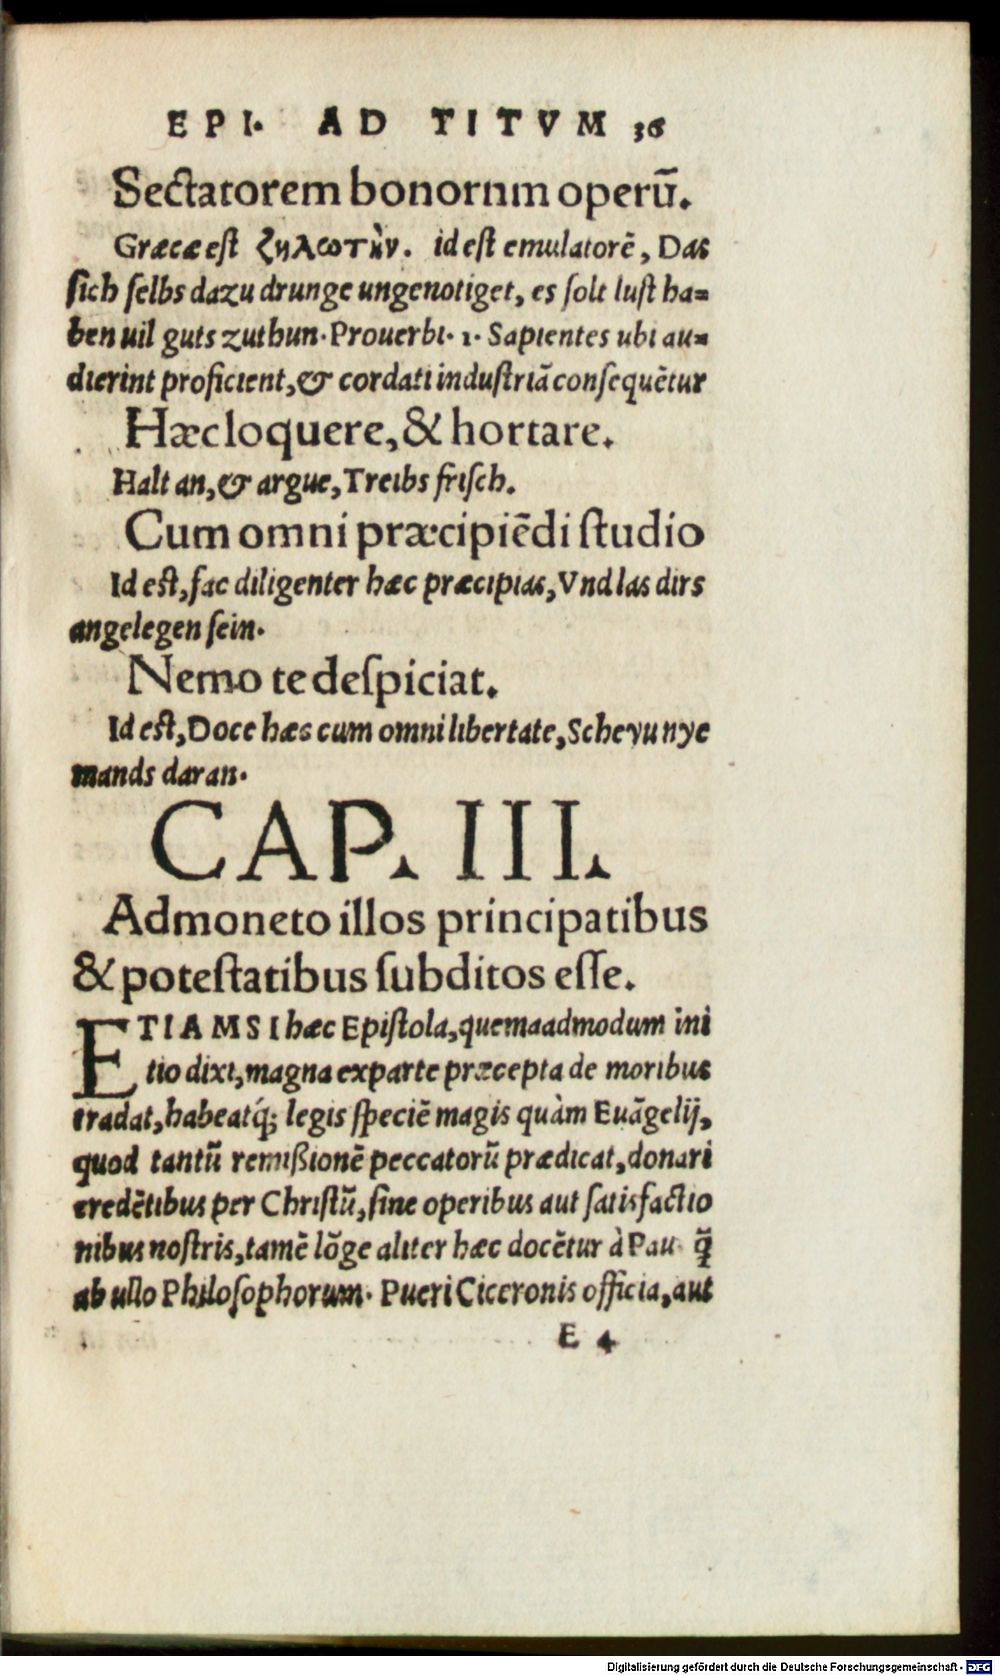 EPI. AD TITVM 36
Sectatorem bonornm operū.
Græcæ est ζηλωτὴν. id est emulatorē, Das
sich selbs dazu drunge ungenotiget, es solt lust ha=
ben uil guts zuthun. Prouerbi. 1. Sapientes ubi au=
dierint proficient, & cordati industriā consequētur
Hæc loquere, & hortare.
Halt an, & argue, Treibs frisch.
Cum omni præcipiēdi studio
Id est, fac diligenter hæc præcipias, Vnd las dirs
angelegen sein.
Nemo te despiciat.
Id est, Doce hæc cum omni libertate, Scheyu nye
mands daran.
CAP. III.
Admoneto illos principatibus
& potestatibus subditos esse.
ETIAMSI hæc Epistola, quemaadmodum ini
tio dixi, magna ex parte præcepta de moribus
tradat, habeatq́; legis speciē magis quàm Euāgelij,
quod tantū remißionē peccatorū prædicat, donari
credētibus per Christū, sine operibus aut satisfactio
nibus nostris, tamē lōge aliter hæc docētur à Pau. q̄
ab ullo Philosophorum. Pueri Ciceronis officia, aut
E 4
Digitalisierung gefördert durch die Deutsche Forschungsgemeinschaft - DFG